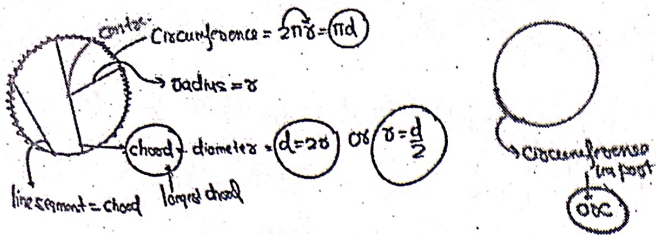 centre
Circumference = 2πr = πd
radius = r
chord - diameter = d = 2r or r = d/2
longest chord
line segment = chord
circumference
im part
arc